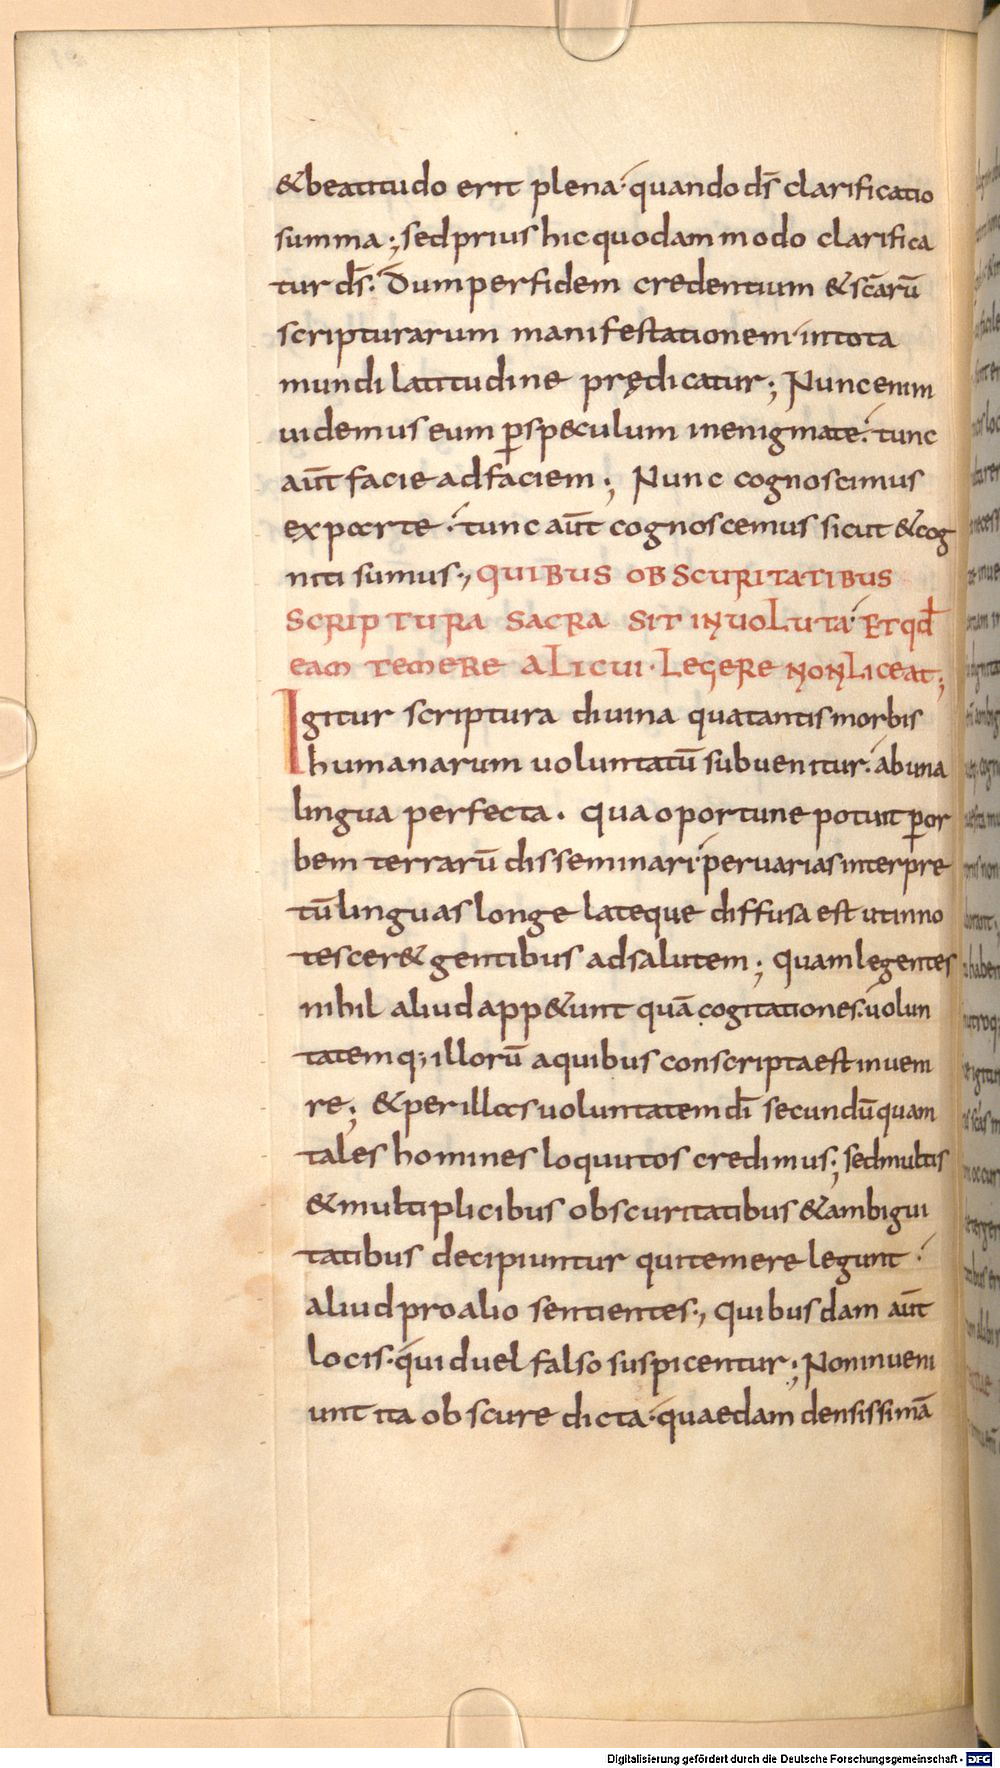 &beatitudo erit plena· quando ds̄ clarificatio
summa; sed prius hic quodam modo clarifica
tur ds̄. Dum per fidem credentium & scārū
scripturarum manifestationem· in tota
mundi latitudine prędicatur; Nunc enim
uidemus eum ꝑ sp&culum in enigmate. tunc
aūt facie ad faciem; Nunc cognoscimus
ex parte. tunc aūt cognoscemus sicut & cog
niti sumus., QUIBUS OBSCURITATIBUS
SCRIPTURA SACRA SIT INUOLUTA· ET qđ
EAM TEMERE ALICUI· LEGERE NON LICEAT;
Igitur scriptura diuina qua tantis morbis
humanarum uoluntatū subuenitur. ab una
lingua perfecta. Qua oportune potuit ꝑ or
bem terrarū disseminari· per uarias interpre
tū linguas longe lateque diffusa est ut inno
tescer& gentibus ad salutem; Quam legentes
nihil aliud app&unt quā cogitationes. uolun
tatemq; illorū a quibus conscripta est inueni
re; & per illas uoluntatem dī secundū quam
tales homines loquutos credimus; sed multis
& multiplicibus obscuritatibus & ambigui
tatibus decipiuntur qui temere legunt.
aliud pro alio sentientes., Quibusdam aūt
locis· quid uel falso suspicentur; Non inueni
unt ita obscure dicta· quaedam densissimā
Digitalisierung gefördert durch die Deutsche Forschungsgemeinschaft - DFG